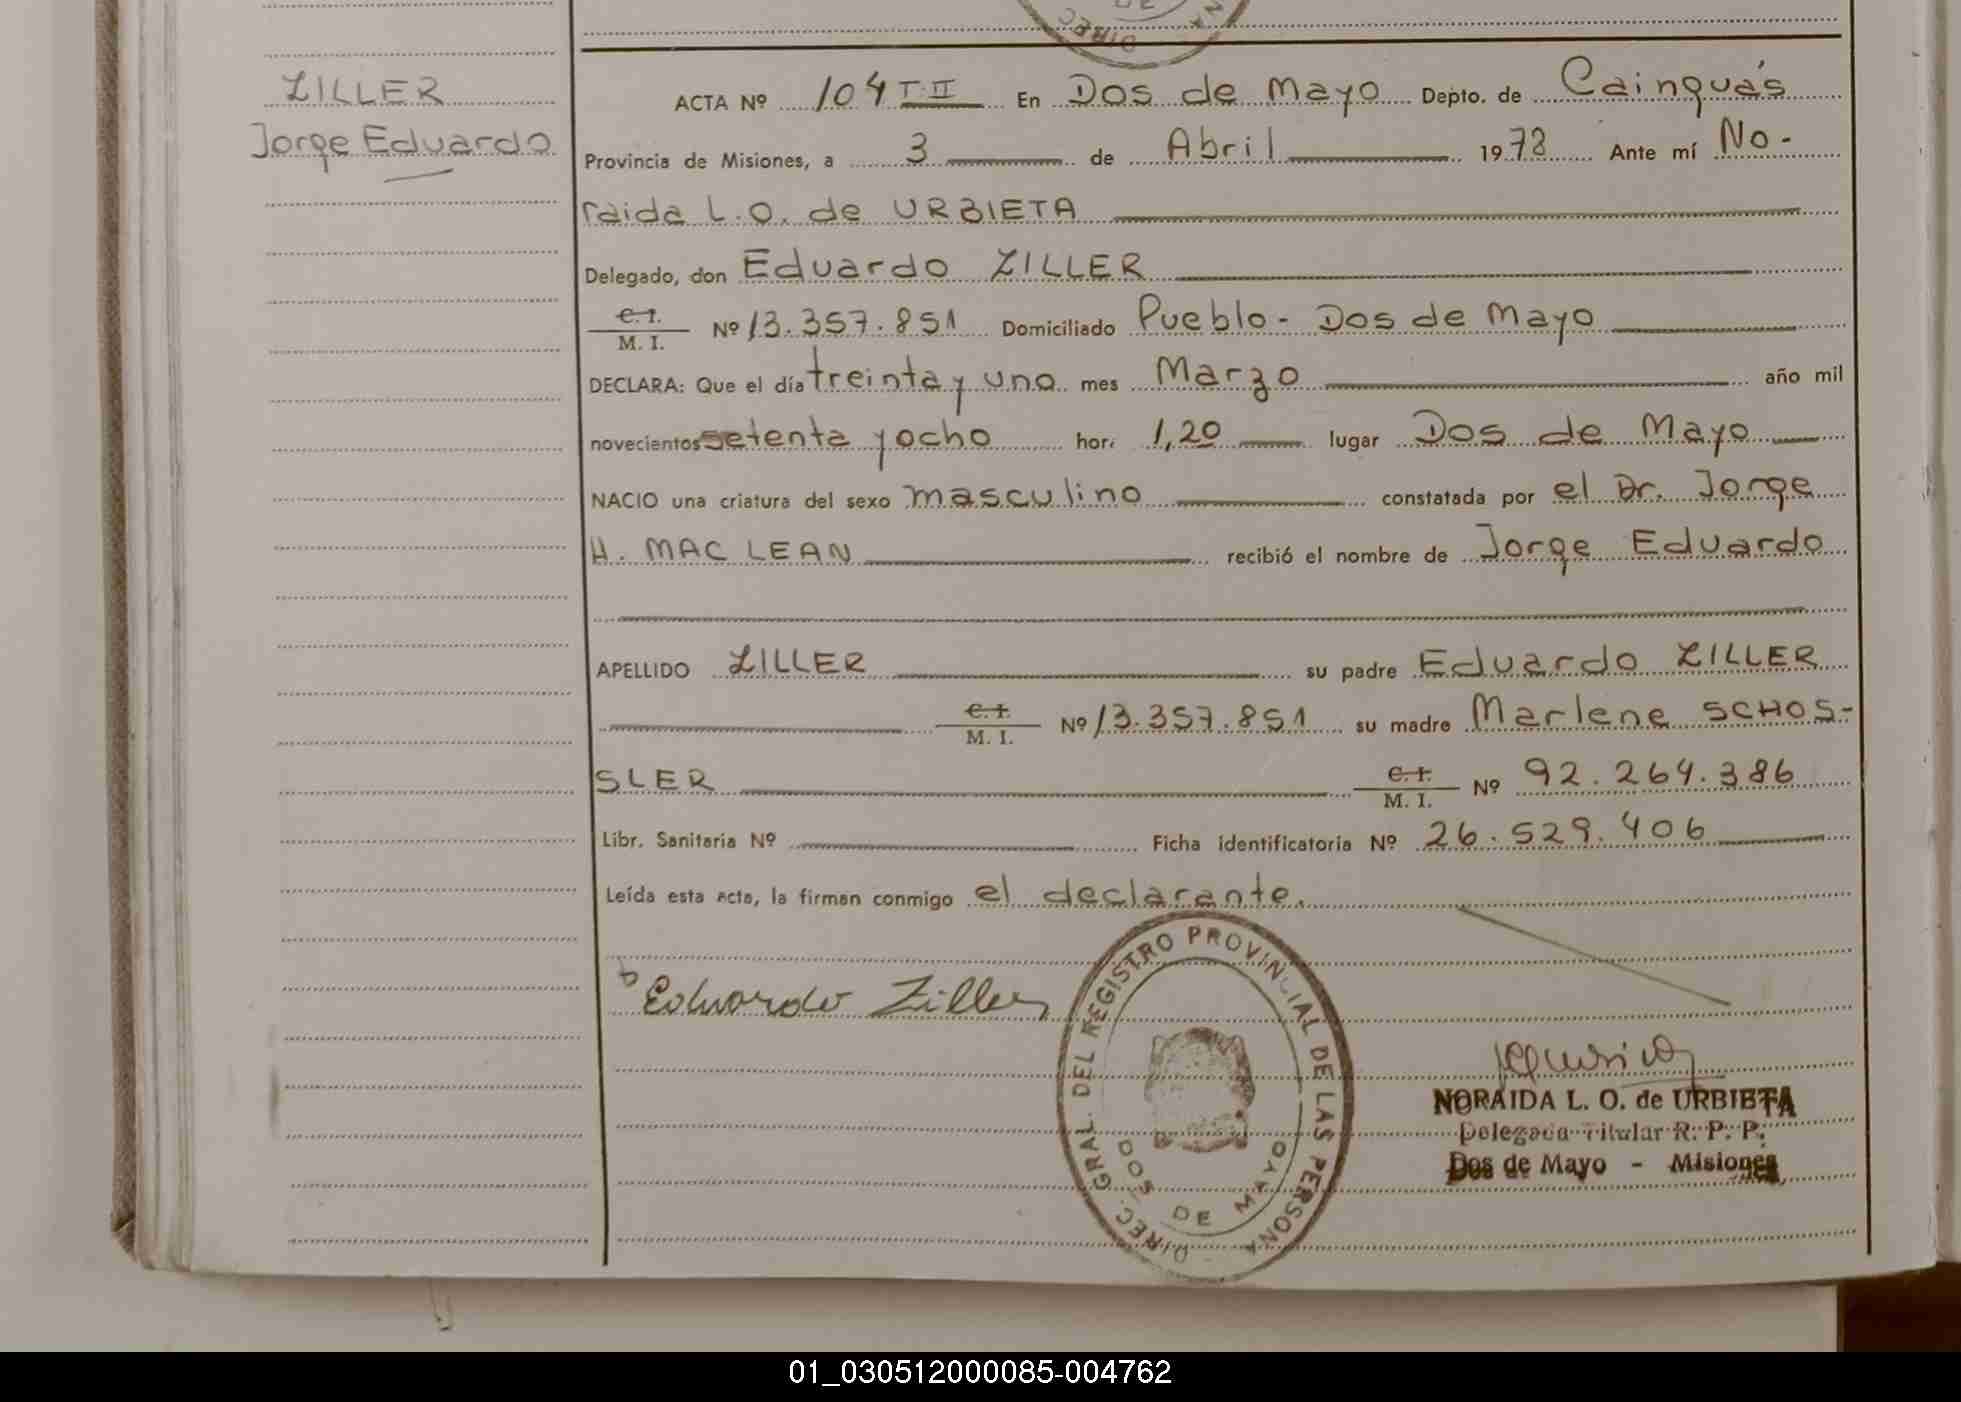 ZILLER
Jorge Eduardo
ACTA Nº 104 T II En Dos de Mayo Depto. de Cainguás
Provincia de Misiones, a 3 de Abril 1978 Ante mí No-
raida L. O. de URBIETA
Delegado, don Eduardo ZILLER
C. I. / M. I. Nº 13.357.851 Domiciliado Pueblo - Dos de Mayo
DECLARA: Que el día treinta y uno mes Marzo año mil
novecientos setenta y ocho hora 1,20 lugar Dos de Mayo
NACIO una criatura del sexo masculino constatada por el Dr. Jorge
H. MAC LEAN recibió el nombre de Jorge Eduardo
APELLIDO ZILLER su padre Eduardo ZILLER
C. I. / M. I. Nº 13.357.851 su madre Marlene SCHOS-
SLER C. I. / M. I. Nº 92.264.386
Libr. Sanitaria Nº Ficha identificatoria Nº 26.529.406
Leída esta acta, la firman conmigo el declarante.
Eduardo Ziller
DIREC. GRAL. DEL REGISTRO PROVINCIAL DE LAS PERSONA
DOS DE MAYO
NORAIDA L. O. de URBIETA
Delegada Titular R. P. P.
Dos de Mayo - Misiones
01_030512000085-004762